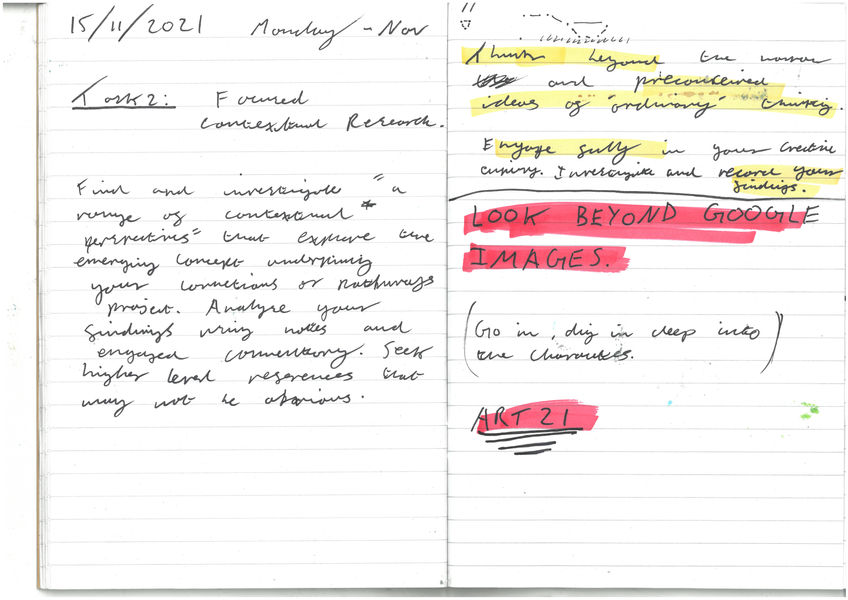 15/11/2021 Monday - Nov
Task 2: Focused
contextual Research.
Find and investigate "a
range of contextual
perspectives" that explore the
emerging concept underpinning
your connections or pathways
project. Analyse your
findings using notes and
engaged commentary. Seek
higher level references that
may not be obvious.
"
Think beyond the narrow
and preconceived
ideas of "ordinary" thinking.
Engage fully in your creative
enquiry. Investigate and record your
findings.
LOOK BEYOND GOOGLE
IMAGES.
(Go in, dig in deep into
the characters.)
ART 21